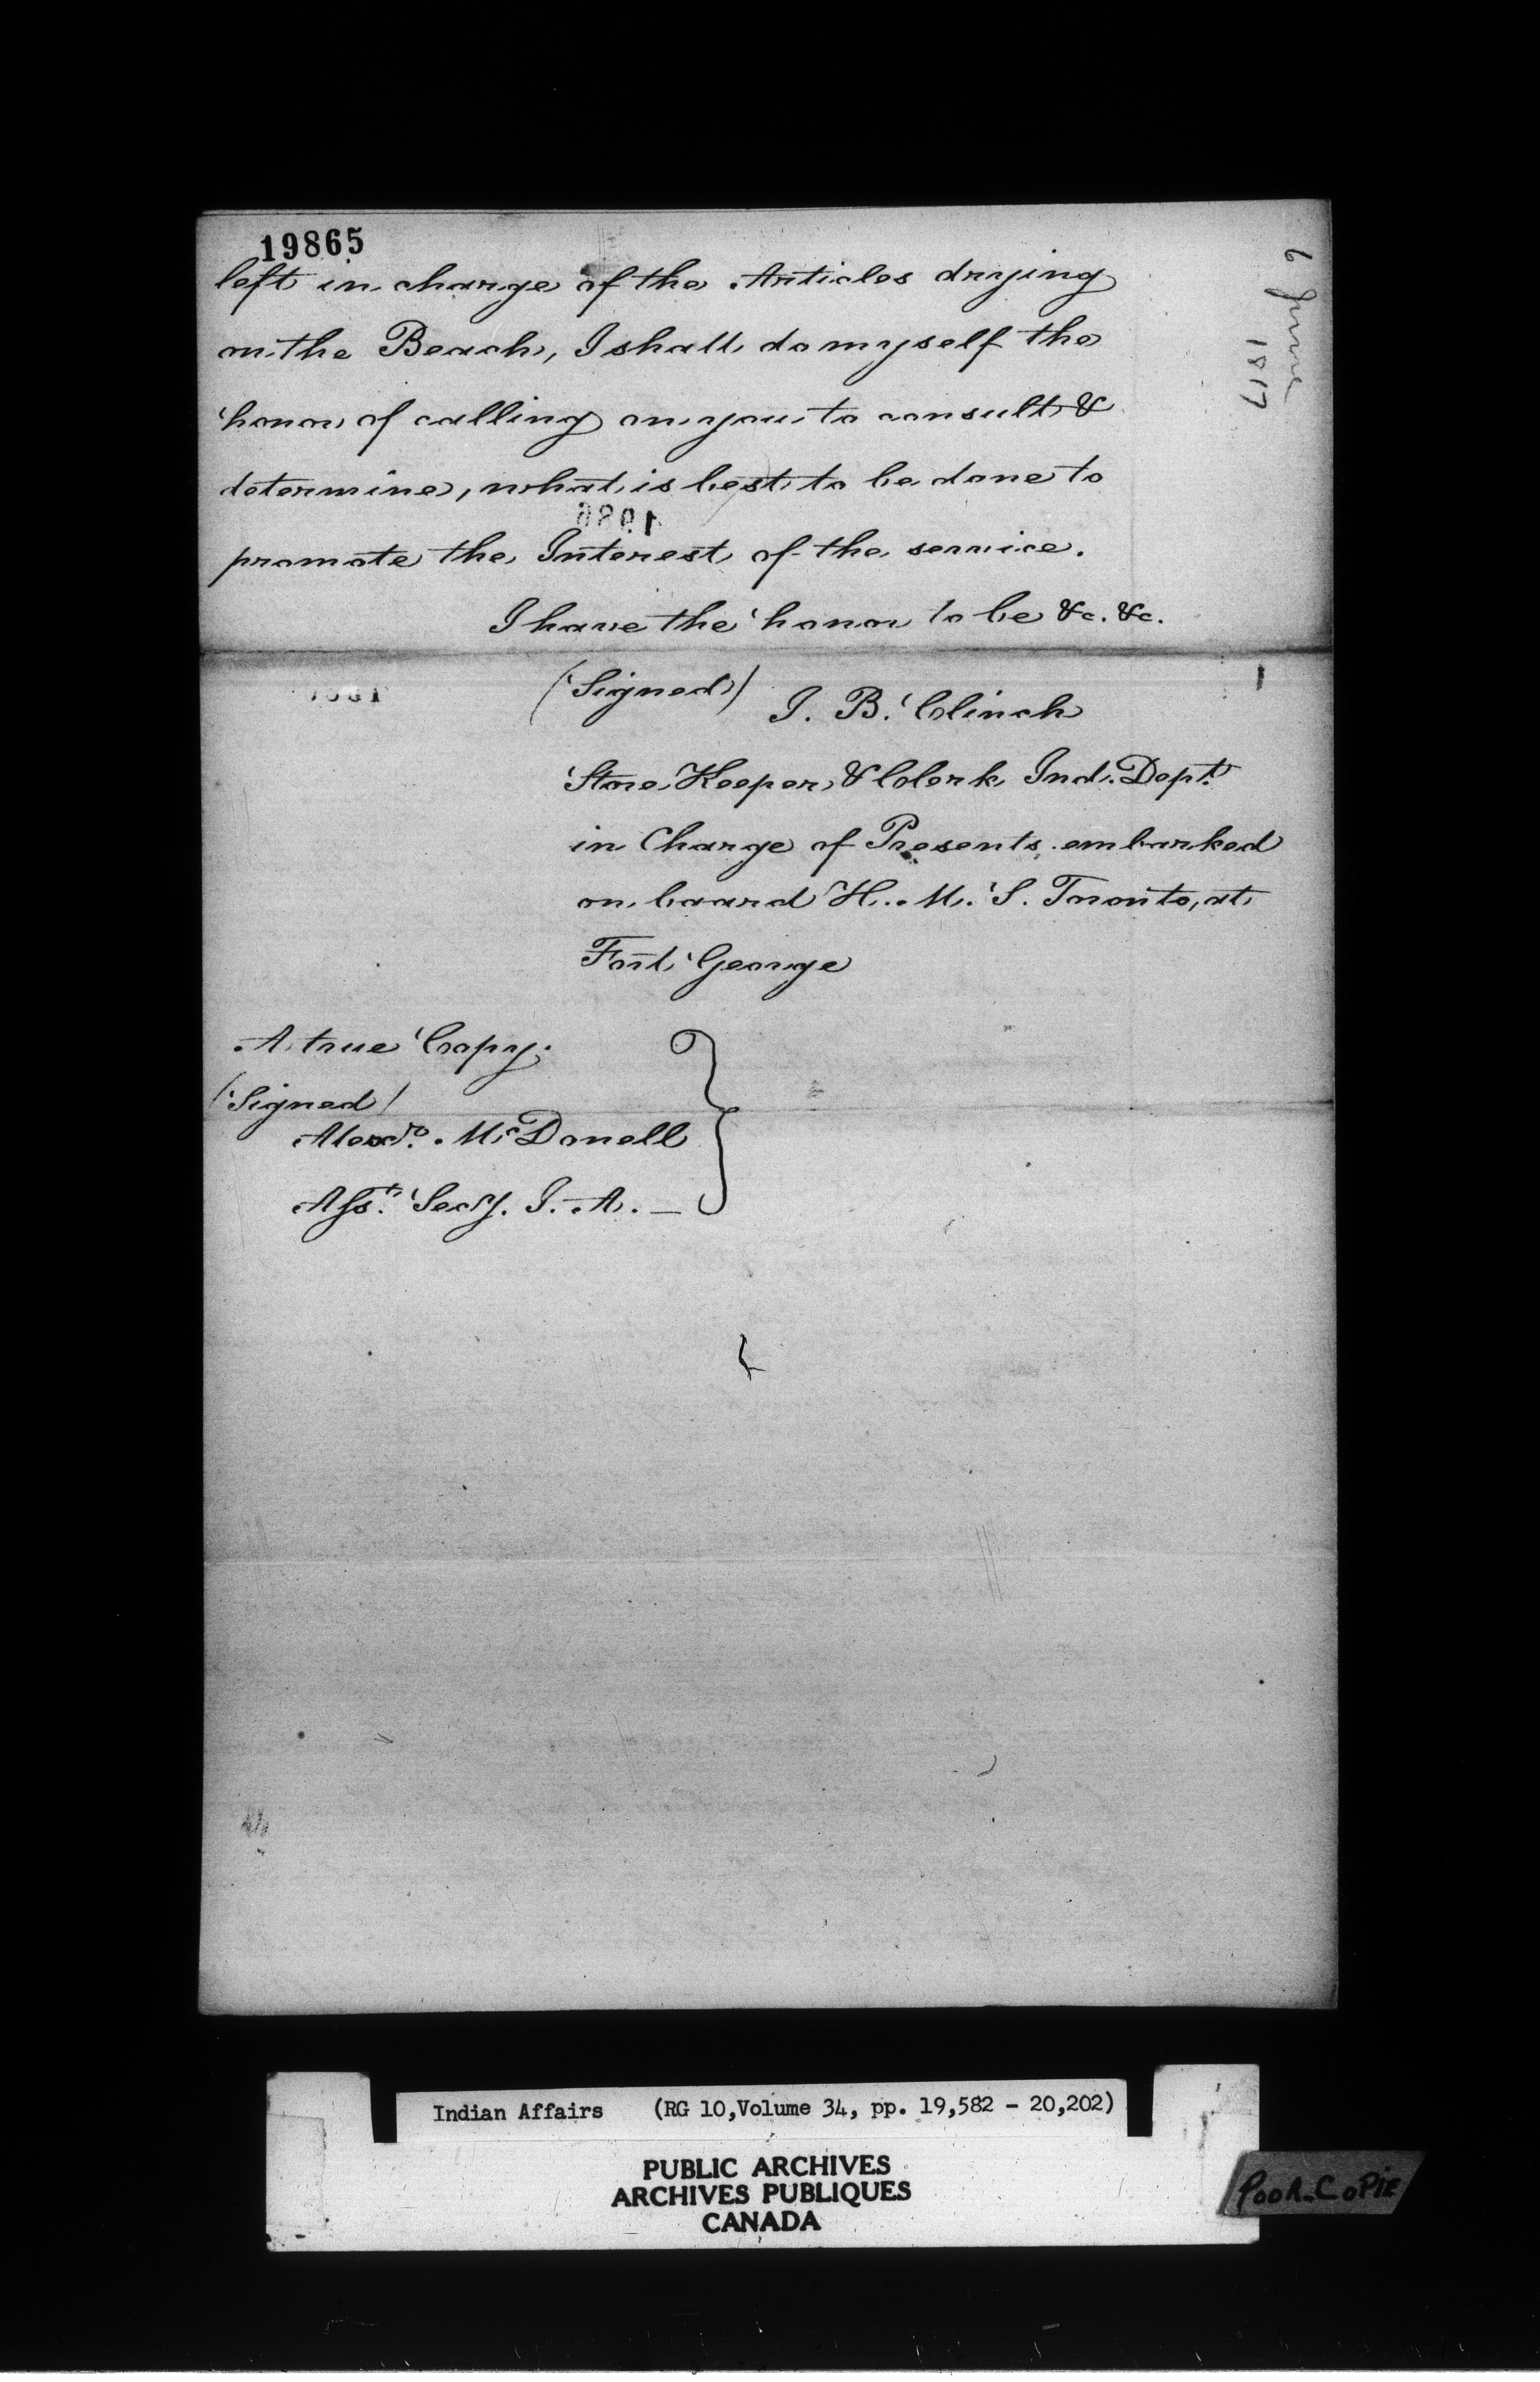 19865
6 June
1817
left in charge of the Articles drying
on the Beach, I shall do myself the
honor of calling on you to consult &
determine, what is best to be done to
promote the Interest of the service.
I have the honor to be &c. &c.
(Signed) J. B. Clinch
Store Keeper & Clerk Ind. Dept.
in Charge of Presents embarked
on board H. M. S. Toronto, at
Fort George
A true Copy.
(Signed)
Alexdr. McDonell
Asst. Secy. I. A. —
Indian Affairs (RG 10, Volume 34, pp. 19,582 - 20,202)
PUBLIC ARCHIVES
ARCHIVES PUBLIQUES
CANADA
POOR COPIE